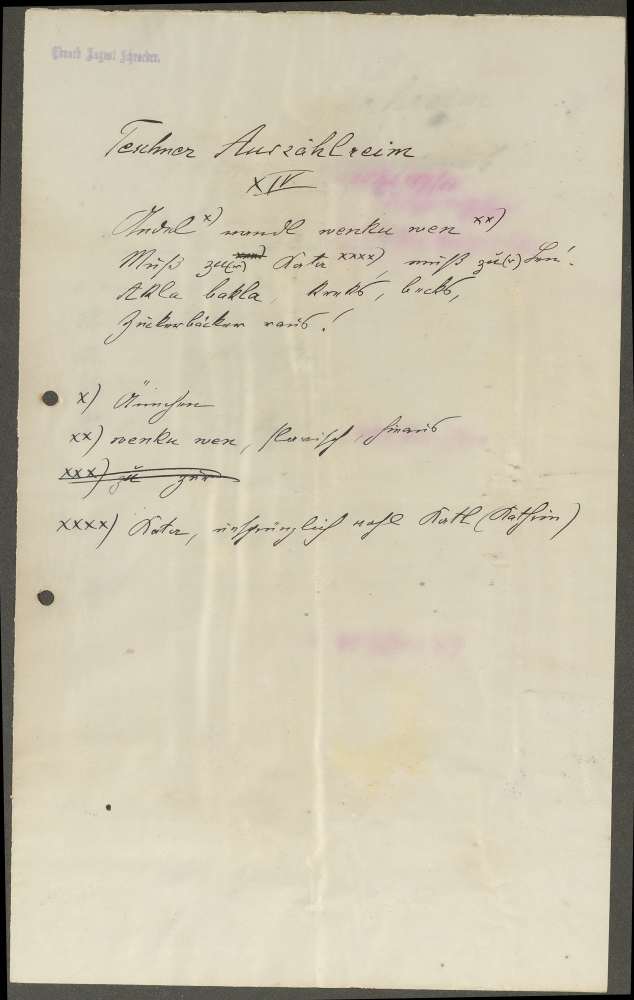 August Schroeder.
Teschner Auszählreim
XIV
Andel x) wandl wenku wen xx)
Muß zu(r) Kater xxxx), muß zu(r)
Akla bakla, becks,
Zuckerbäcker raus!
x)
xx) wenku wen, slavisch, hinaus
xxx) zu zur
xxxx) Kater, ursprünglich wohl Katl (Kathrin)